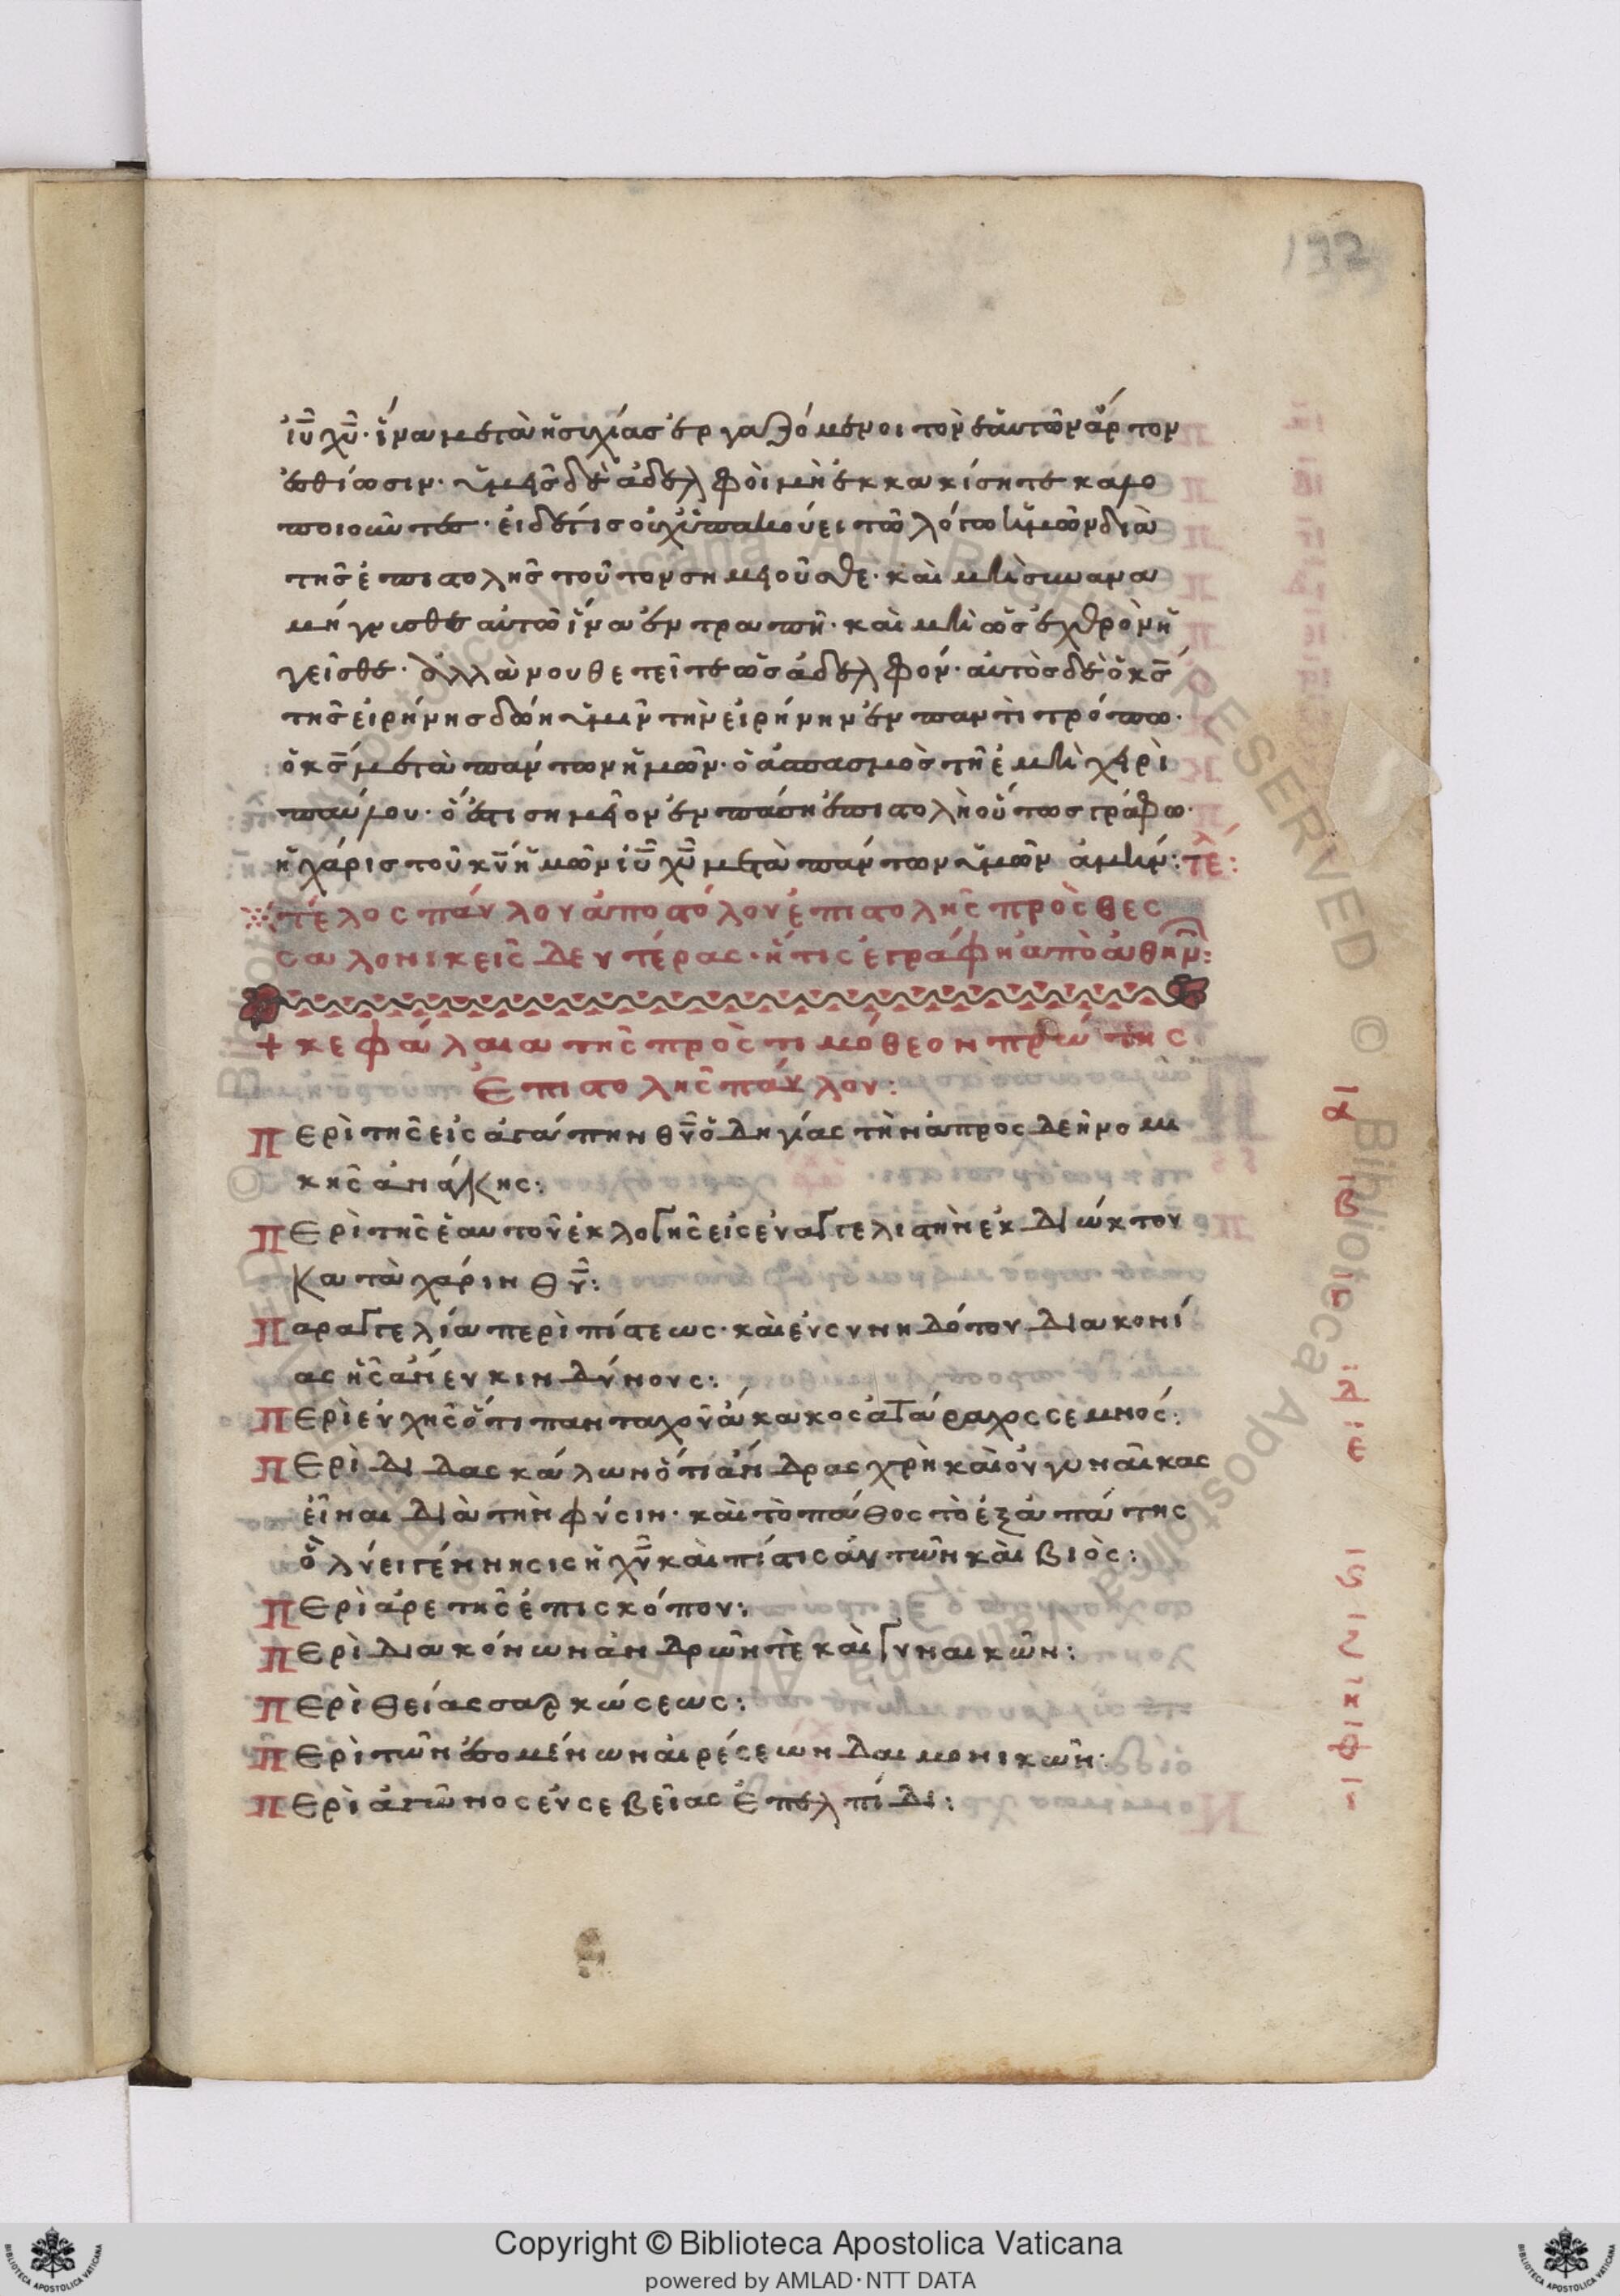 132
ἰῦ χῦ· ἵνα μετὰ ἡσυχίας ἐργαζόμενοι τὸν ἑαυτῶν ἄρτον
ἐσθίωσιν· ὑμεῖς δὲ ἀδελφοὶ μὴ ἐκκακίσητε καλο
ποιοῦντες· εἰ δέ τις οὐχ ὑπακούει τῶ λόγω ἡμῶν διὰ
τῆς ἐπιστολῆς τοῦτον σημειοῦσθε· καὶ μὴ συνανα
μίγνισθε αὐτῶ ἵνα ἐντραπῆ· καὶ μὴ ὡς ἐχθρὸν ἡ
γεῖσθε· ἀλλὰ νουθετεῖτε ὡς ἀδελφόν· αὐτὸς δὲ ὁ κς
τῆς εἰρήνης δώη ὑμῖν τὴν εἰρήνην ἐν παντὶ τρόπω·
ὁ κς μετὰ πάντων ἡμῶν· ὁ ἀσπασμὸς τῆ ἐμὴ χειρὶ
παύλου· ὅ ἐστι σημεῖον ἐν πάση ἐπιστολῆ οὕτως γράφω·
ἡ χάρις τοῦ κυ ἡμῶν ἰῦ χῦ μετὰ πάντων ὑμῶν ἀμήν: τε:
τέλος παύλου ἀποστόλου ἐπιστολῆς πρὸς θες
σαλονικεῖς δευτέρας· ἥτις ἐγράφη ἀπὸ ἀθην:
+ κεφάλαια τῆς πρὸς τιμόθεον πρώτης
ἐπιστολῆς παύλου:
Περὶ τῆς εἰς ἀγάπην θυ ὁδηγίας τὴν ἀπρος δεῆ νομι
κῆς ἀνάγκης: α
Περὶ τῆς ἑαυτοῦ ἐκλογῆς εἰς εὐαγγελιστὴν ἐκ διώκτου
κατὰ χάριν θυ: β
Παραγγελία περὶ πίστεως· καὶ εὐσυνηδότου διακονί
ας ἧς ἄνευ κινδύνους: γ
Περὶ εὐχῆς ὅτι πανταχοῦ ἄκακος ἀτάραχος σεμνός: δ
Περὶ διδασκάλων ὅτι ἄνδρας χρὴ καὶ οὐ γυναῖκας ε
εἶναι διὰ τὴν φύσιν· καὶ τὸ πάθος τὸ ἐξ ἀπάτης
ὃ λύει γέννησις ἡ χυ καὶ πίστις αὐτῶν καὶ βιὸς:
Περὶ ἀρετῆς ἐπισκόπου: ς
Περὶ διακόνων ἀνδρῶν τὲ καὶ γυναικῶν: ζ
Περὶ θείας σαρκώσεως: η
Περὶ τῶν ἐσομένων αἱρέσεων δαιμονικῶν: θ
Περὶ ἀγῶνος εὐσεβείας ἐπελπίδι: ι
Copyright © Biblioteca Apostolica Vaticana
powered by AMLAD·NTT DATA